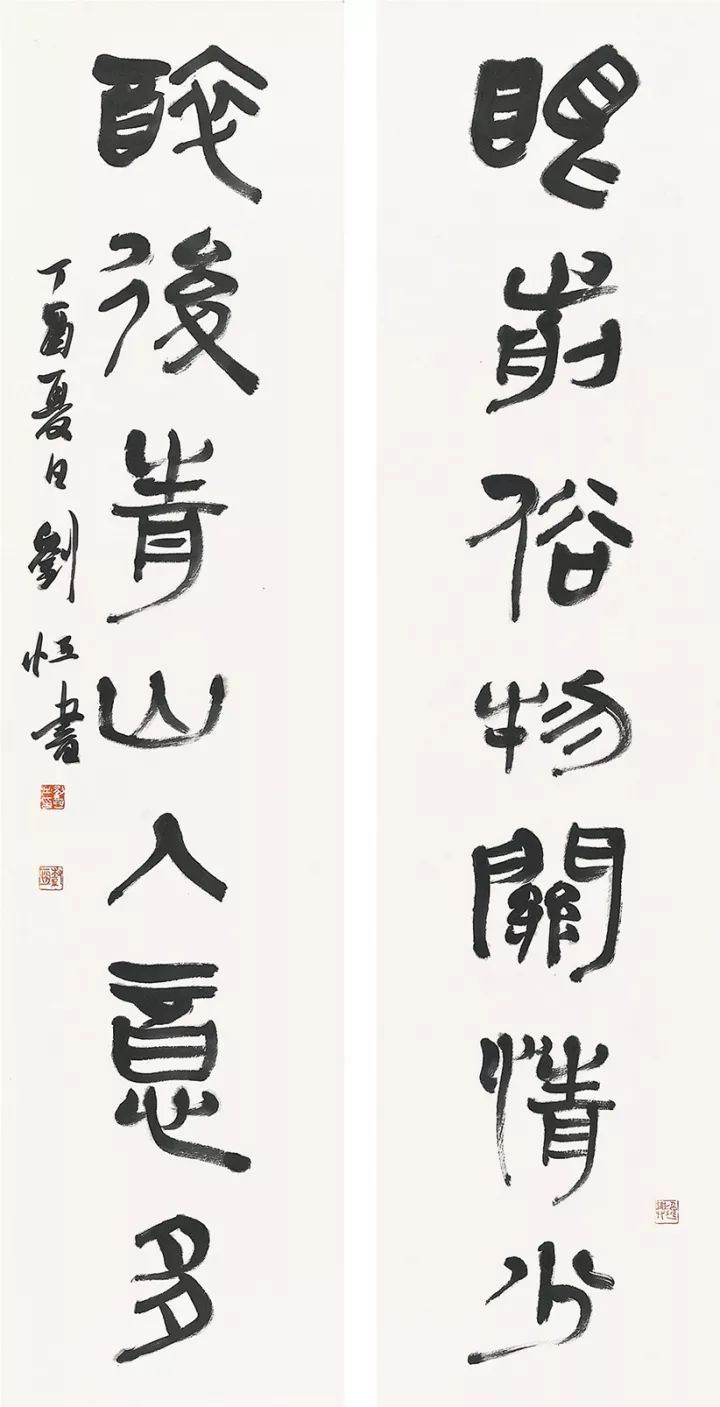 眼前俗物關情少
醉後青山入意多
丁酉夏日劉恒書